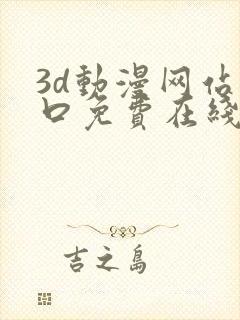 3d動漫网佔
口免費在綫
吉之島